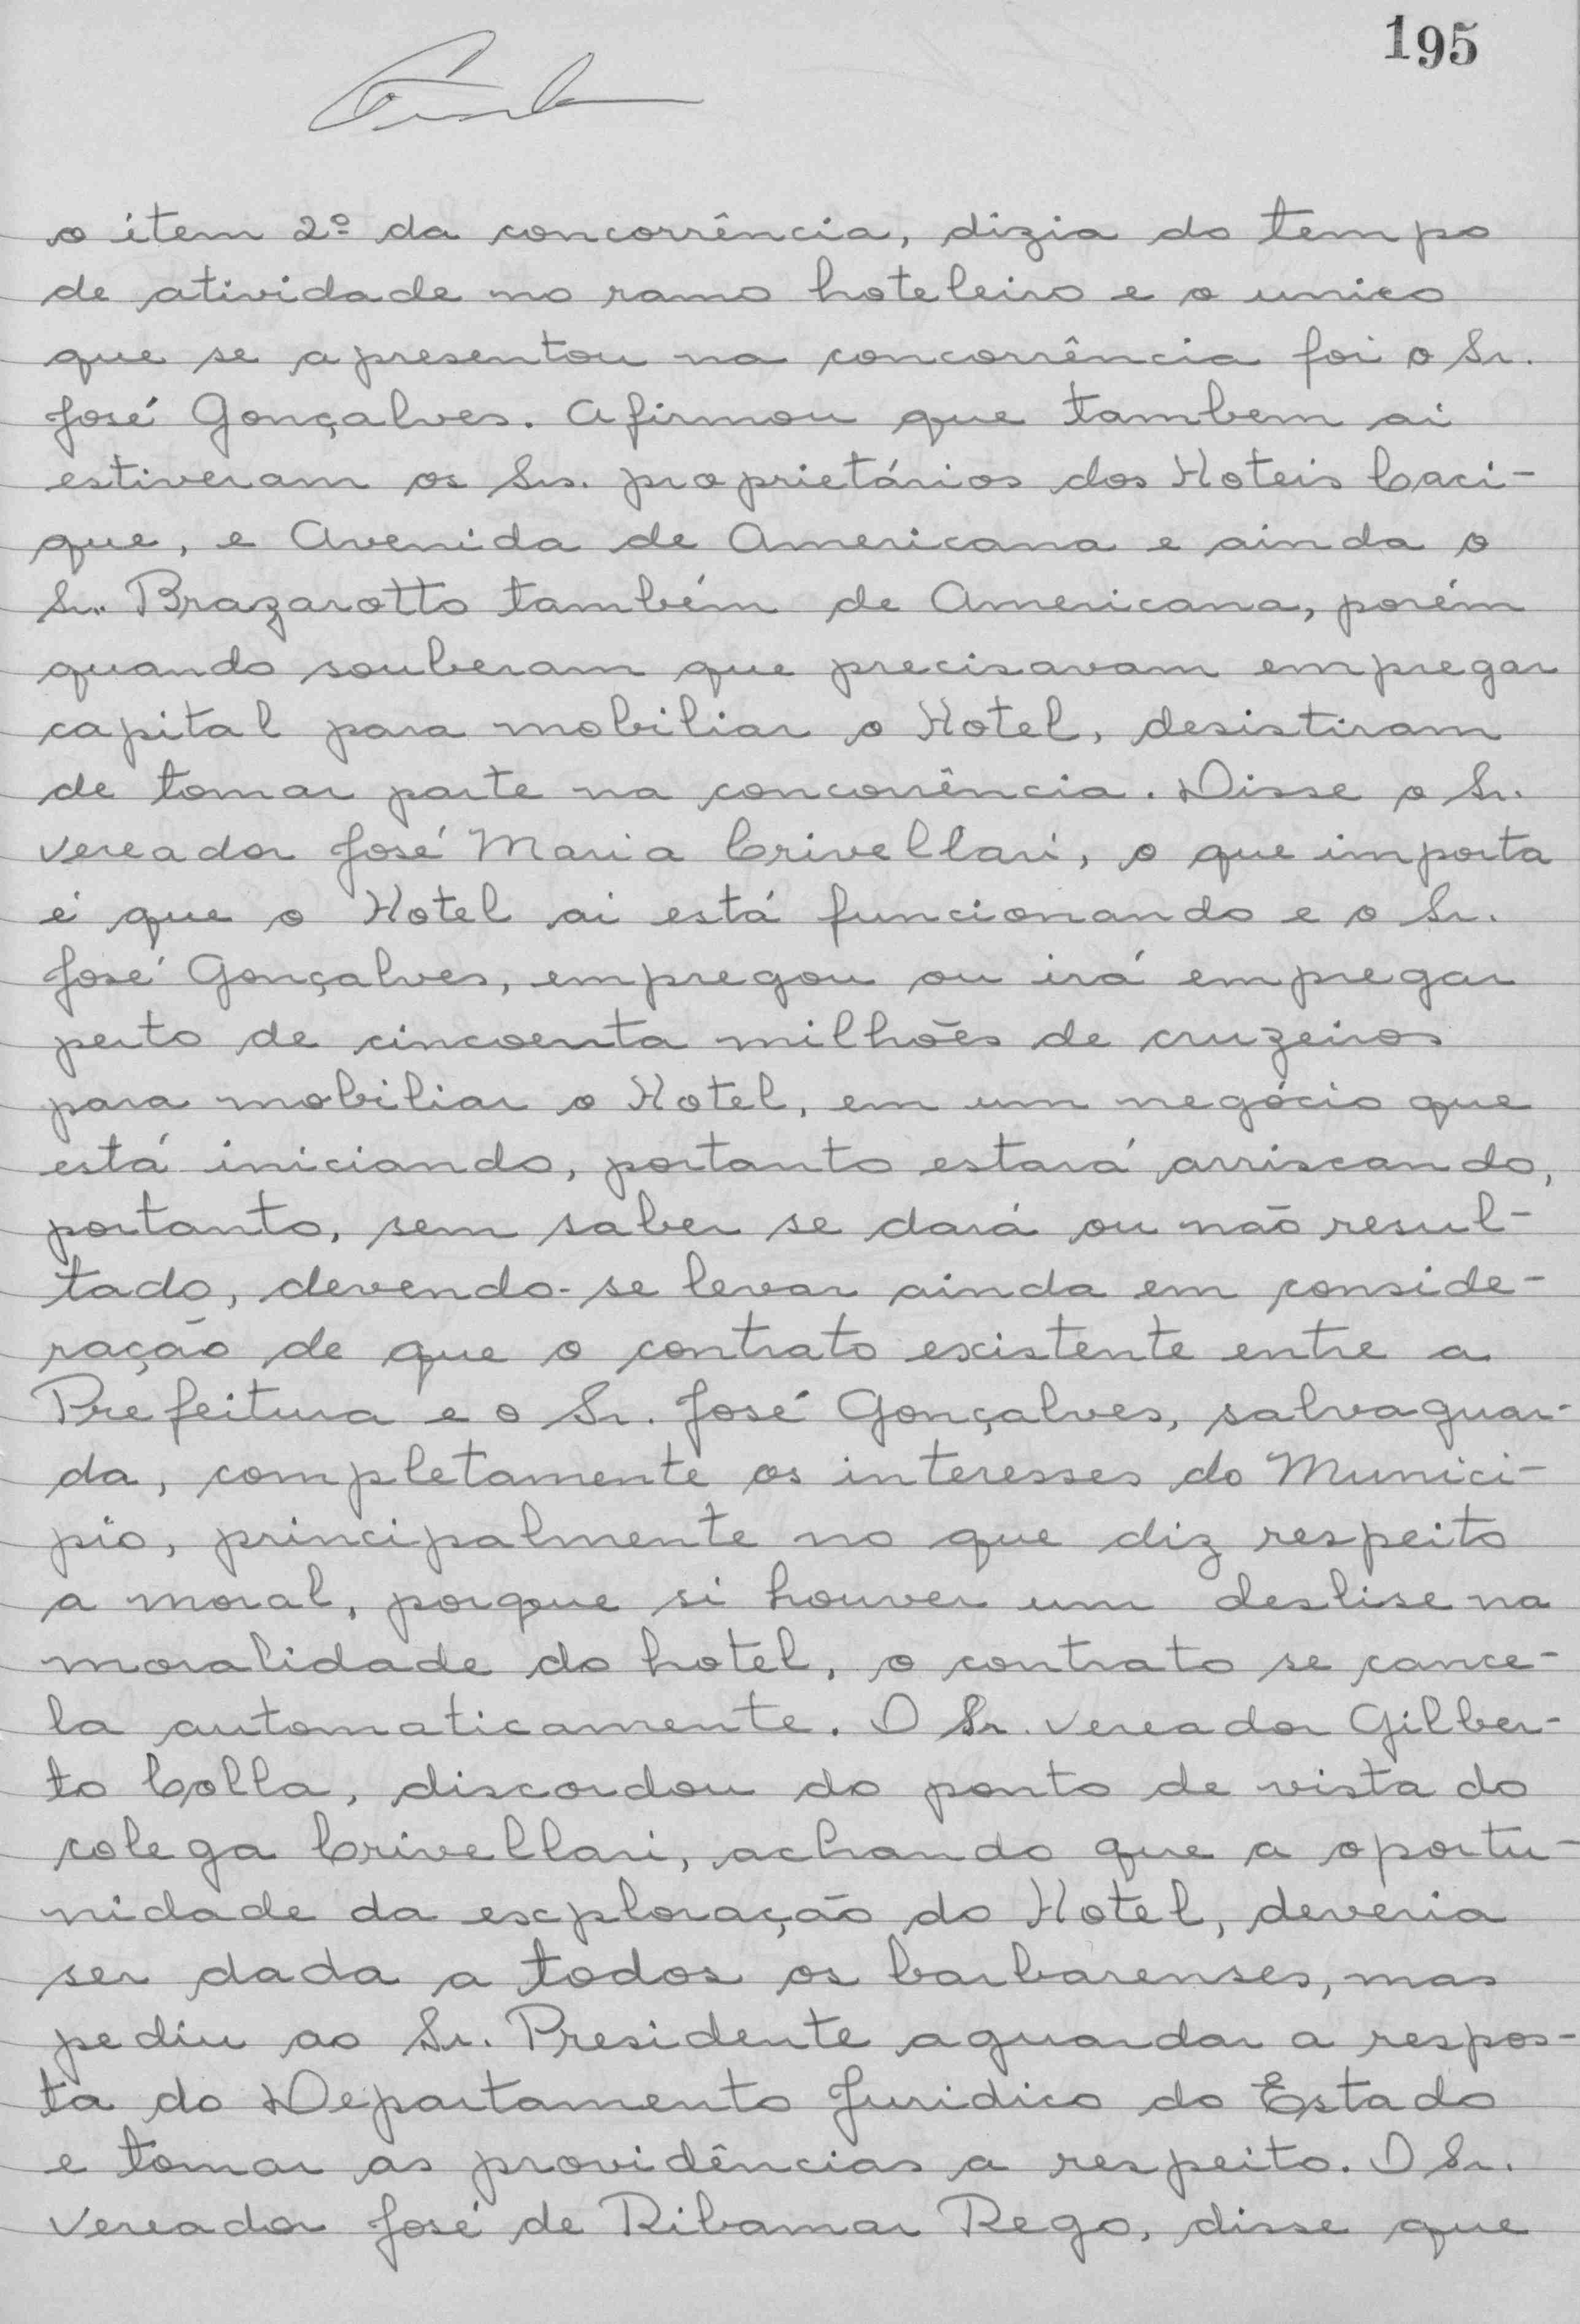 195
o ítem 2º da concorrência, dizia do tempo
de atividade no ramo hoteleiro e o unico
que se apresentou na concorrência foi o Sr.
José Gonçalves. Afirmou que tambem ai
estiveram os Srs. proprietários dos Hoteis Caci-
que, e Avenida de Americana e ainda o
Sr. Brazarotto também de Americana, porém
quando souberam que precisavam empregar
capital para mobiliar o Hotel, desistiram
de tomar parte na concorrência. Disse o Sr.
vereador José Maria Crivellari, o que importa
é que o Hotel ai está funcionando e o Sr.
José Gonçalves, empregou ou irá empregar
perto de cincoenta milhões de cruzeiros
para mobiliar o Hotel, em um negócio que
está iniciando, portanto estará arriscando,
portanto, sem saber se dará ou não resul-
tado, devendo-se levar ainda em conside-
ração de que o contrato existente entre a
Prefeitura e o Sr. José Gonçalves, salvaguar-
da, completamente os interesses do Munici-
pio, principalmente no que diz respeito
a moral, porque si houver um deslise na
moralidade do hotel, o contrato se cance-
la automaticamente. O Sr. vereador Gilber-
to Colla, discordou do ponto de vista do
colega Crivellari, achando que a oportu-
nidade da exploração do Hotel, deveria
ser dada a todos os barbarenses, mas
pediu ao Sr. Presidente aguardar a respos-
ta do Departamento Juridico do Estado
e tomar as providências a respeito. O Sr.
vereador José de Ribamar Rego, disse que